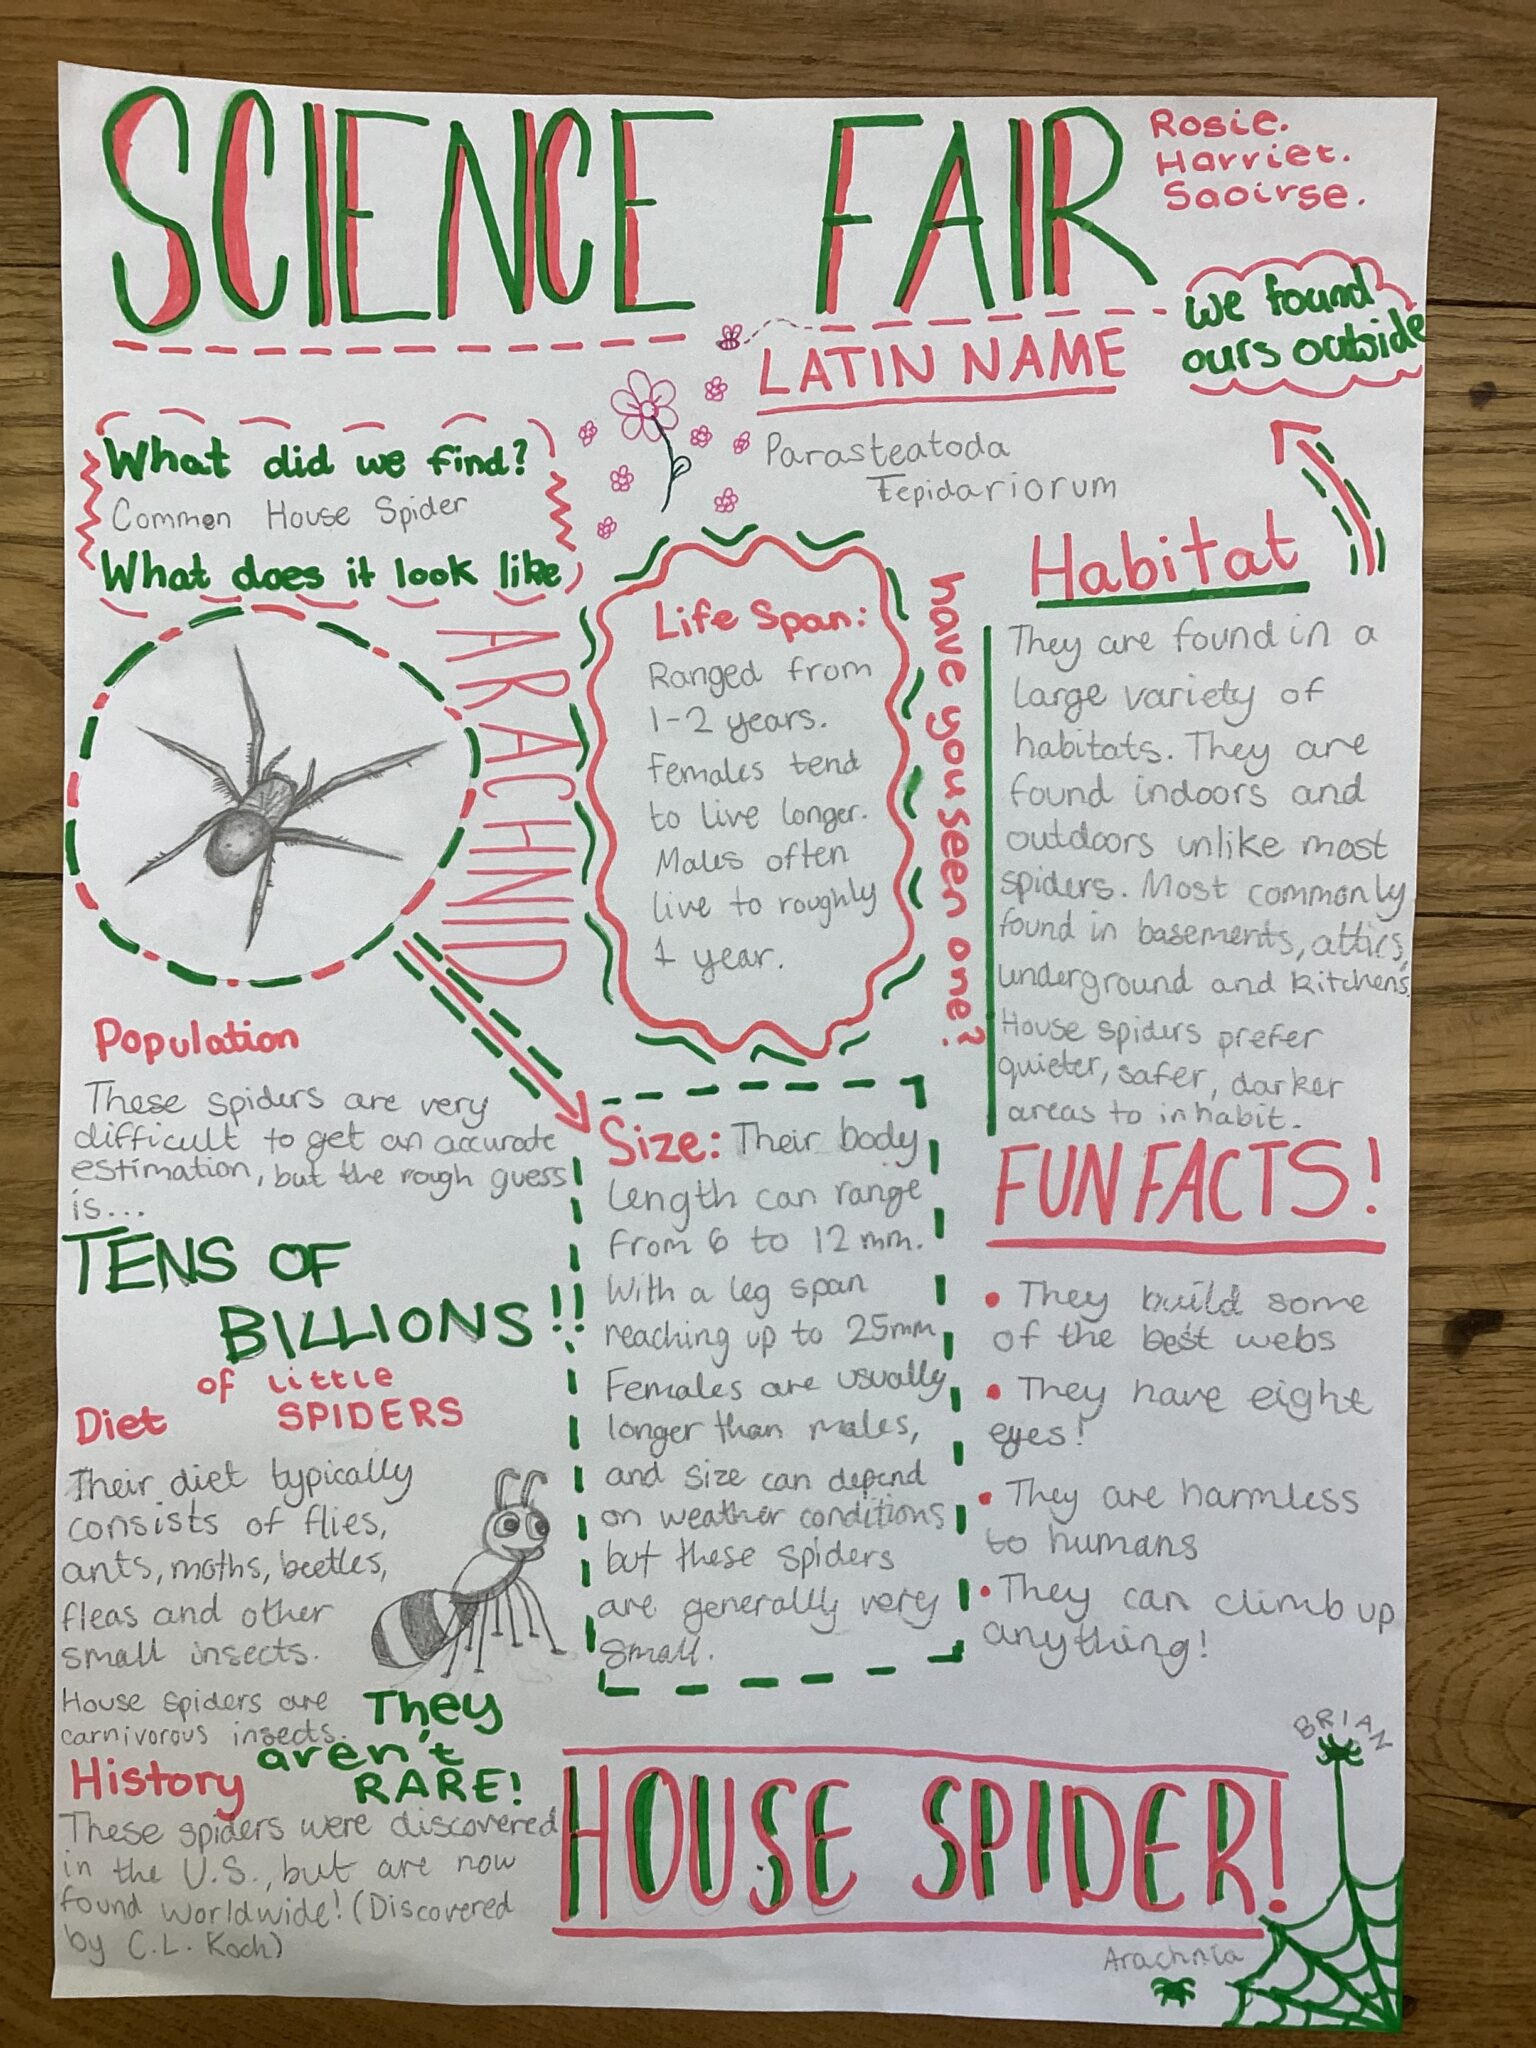 SCIENCE FAIR
Rosie.
Harriet.
Saoirse.
We found
ours outside
LATIN NAME
Parasteatoda
Tepidariorum
What did we find?
Common House Spider
What does it look like
ARACHNID
Life Span:
Ranged from
1-2 years.
Females tend
to live longer.
Males often
live to roughly
1 year.
have you seen one?
Habitat
They are found in a
large variety of
habitats. They are
found indoors and
outdoors unlike most
spiders. Most commonly
found in basements, attics,
underground and kitchens.
House spiders prefer
quieter, safer, darker
areas to inhabit.
Population
These spiders are very
difficult to get an accurate
estimation, but the rough guess
is...
TENS OF
BILLIONS!!
of little
SPIDERS
Size: Their body
length can range
from 6 to 12mm.
With a leg span
reaching up to 25mm
Females are usually
longer than males,
and size can depend
on weather conditions
but these spiders
are generally very
small.
FUN FACTS!
• They build some
of the best webs
• They have eight
eyes!
• They are harmless
to humans
• They can climb up
anything!
Diet
Their diet typically
consists of flies,
ants, moths, beetles,
fleas and other
small insects.
House spiders are
carnivorous insects.
They
aren't
RARE!
History
These spiders were discovered
in the U.S., but are now
found worldwide! (Discovered
by C.L. Koch)
HOUSE SPIDER!
BRIAN
Arachnia